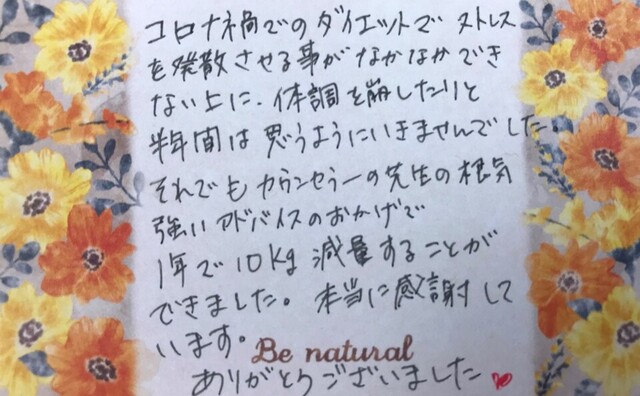 コロナ禍でのダイエットで ストレス
を発散させる事がなかなかでき
ない上に、体調を崩したりと
半年間は思うようにいきませんでした。
それでもカウンセラーの先生の根気
強いアドバイスのおかげで
1年で10kg減量することが
できました。本当に感謝して
います。
Be natural
ありがとうございました